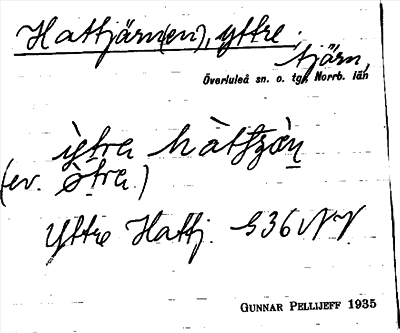 Hattjärn(en), yttre,
tjärn,
Överluleå sn. o. tg., Norrb. län
ỳtra hàtʃæ̀n
(ev. ò̱tra)
Yttre Hattj. S36NV
GUNNAR PELLIJEFF 1935